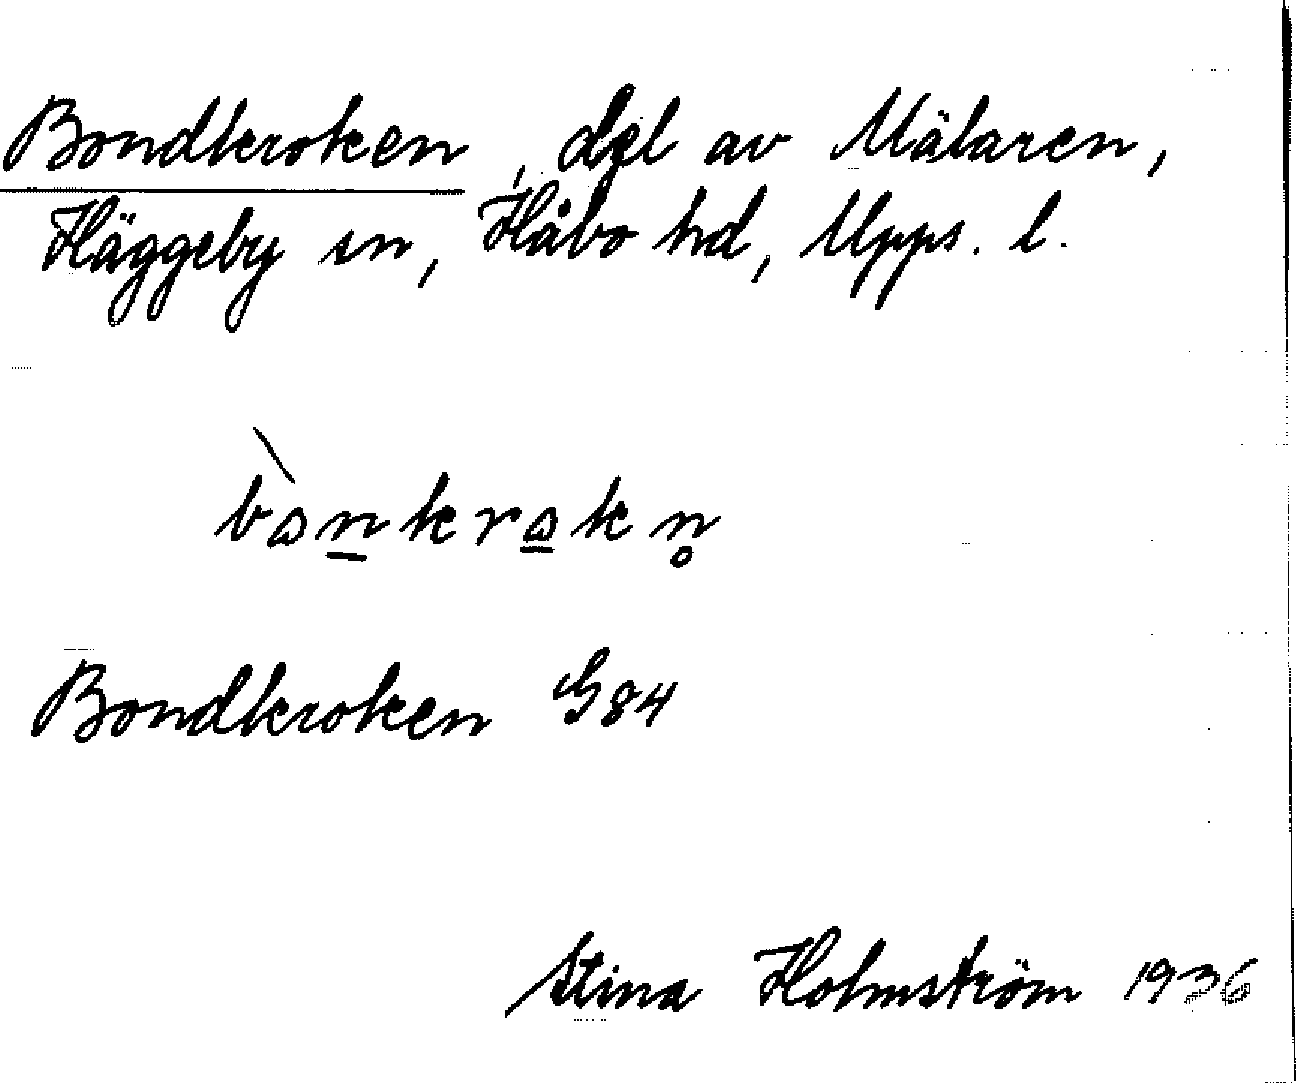 Bondkroken, dgl av Mälaren,
Häggeby sn, Håbo hd, Upps. l.
bὼn̲krω̲kn̥
Bondkroken G 84
Stina Holmström 1936